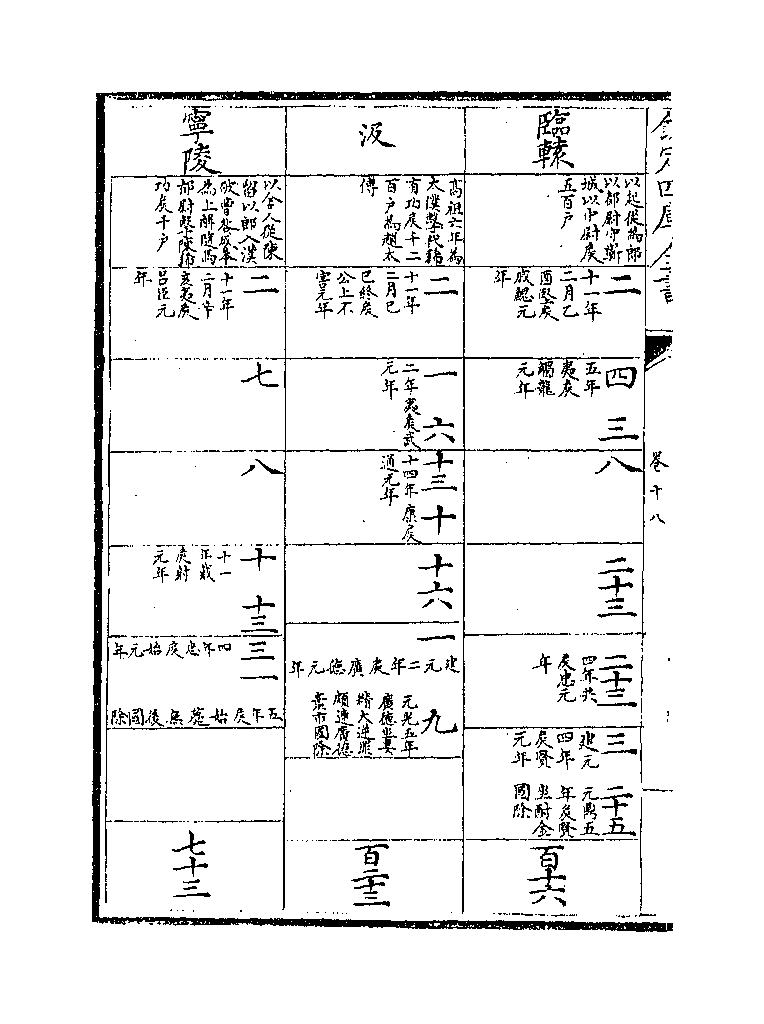 欽定四庫全書
卷十八
臨轅
以起從為郎
以都尉守蘄
城以中尉侯
五百戶
二
十一年
二月乙
酉堅侯
戚鰓元
年
四
五年
夷侯
觸龍
元年
三
八
二十三
二十三
四年共
侯忠元
年
三
建元
四年
侯賢
元年
二十五
元鼎五
年侯賢
坐酎金
國除
百十六
汲
高祖六年為
太僕擊代豨
有功侯千二
百戶為趙太
傅
二
十一年
二月己
巳終侯
公上不
害元年
一
二年夷侯武
元年
六
十三
十四年康侯
通元年
十
十六
一
建元二年侯廣德元年
九
元光五年
廣德坐妻
精大逆罪
頗連廣德
棄市國除
百二十三
寧陵
以舍人從陳
留以郎入漢
破曹咎成臯
為上解隨馬
都尉擊陳豨
功侯千戶
二
十一年
二月辛
亥夷侯
呂臣元
年
七
八
十
十一
年戴
侯射
元年
十三
三
四年惠侯始元年
一
五年侯始薨無後國除
七十三